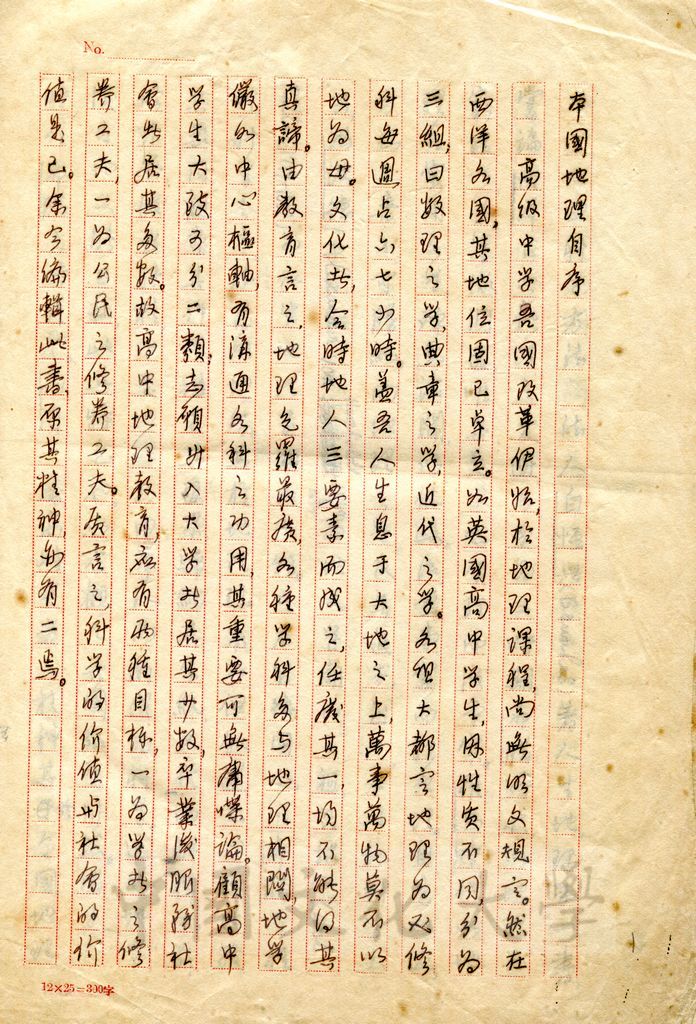 No.
本國地理自序
高級中学吾國改革伊始，於地理課程，尚無明文規定。然在
西洋各國，其地位固已卓立。如英國高中学生，因性质不同，分为
三組，曰数理之学，典章之学，近代之学。各組大都定地理为必修
科每週占六七小時。蓋吾人生息于大地之上，萬事萬物莫不以
地为母。文化者，合時地人三要素而成之，任废其一，均不能得其
真諦。由教育言之，地理包羅最廣，各種学科多与地理相関，地学
儼如中心樞軸，有溝通各科之功用，其重要可無庸喋論。顧高中
学生大致可分二類，志願升入大学者居其少数，卒業後服務社
會者居其多数。故高中地理教育，应有两種目标，一为学者之修
养工夫，一为公民之修養工夫。质言之，科学的价值与社會的价
值是已。余今编輯此書，原其精神，亦有二焉。
12×25=300字
中國文化大學